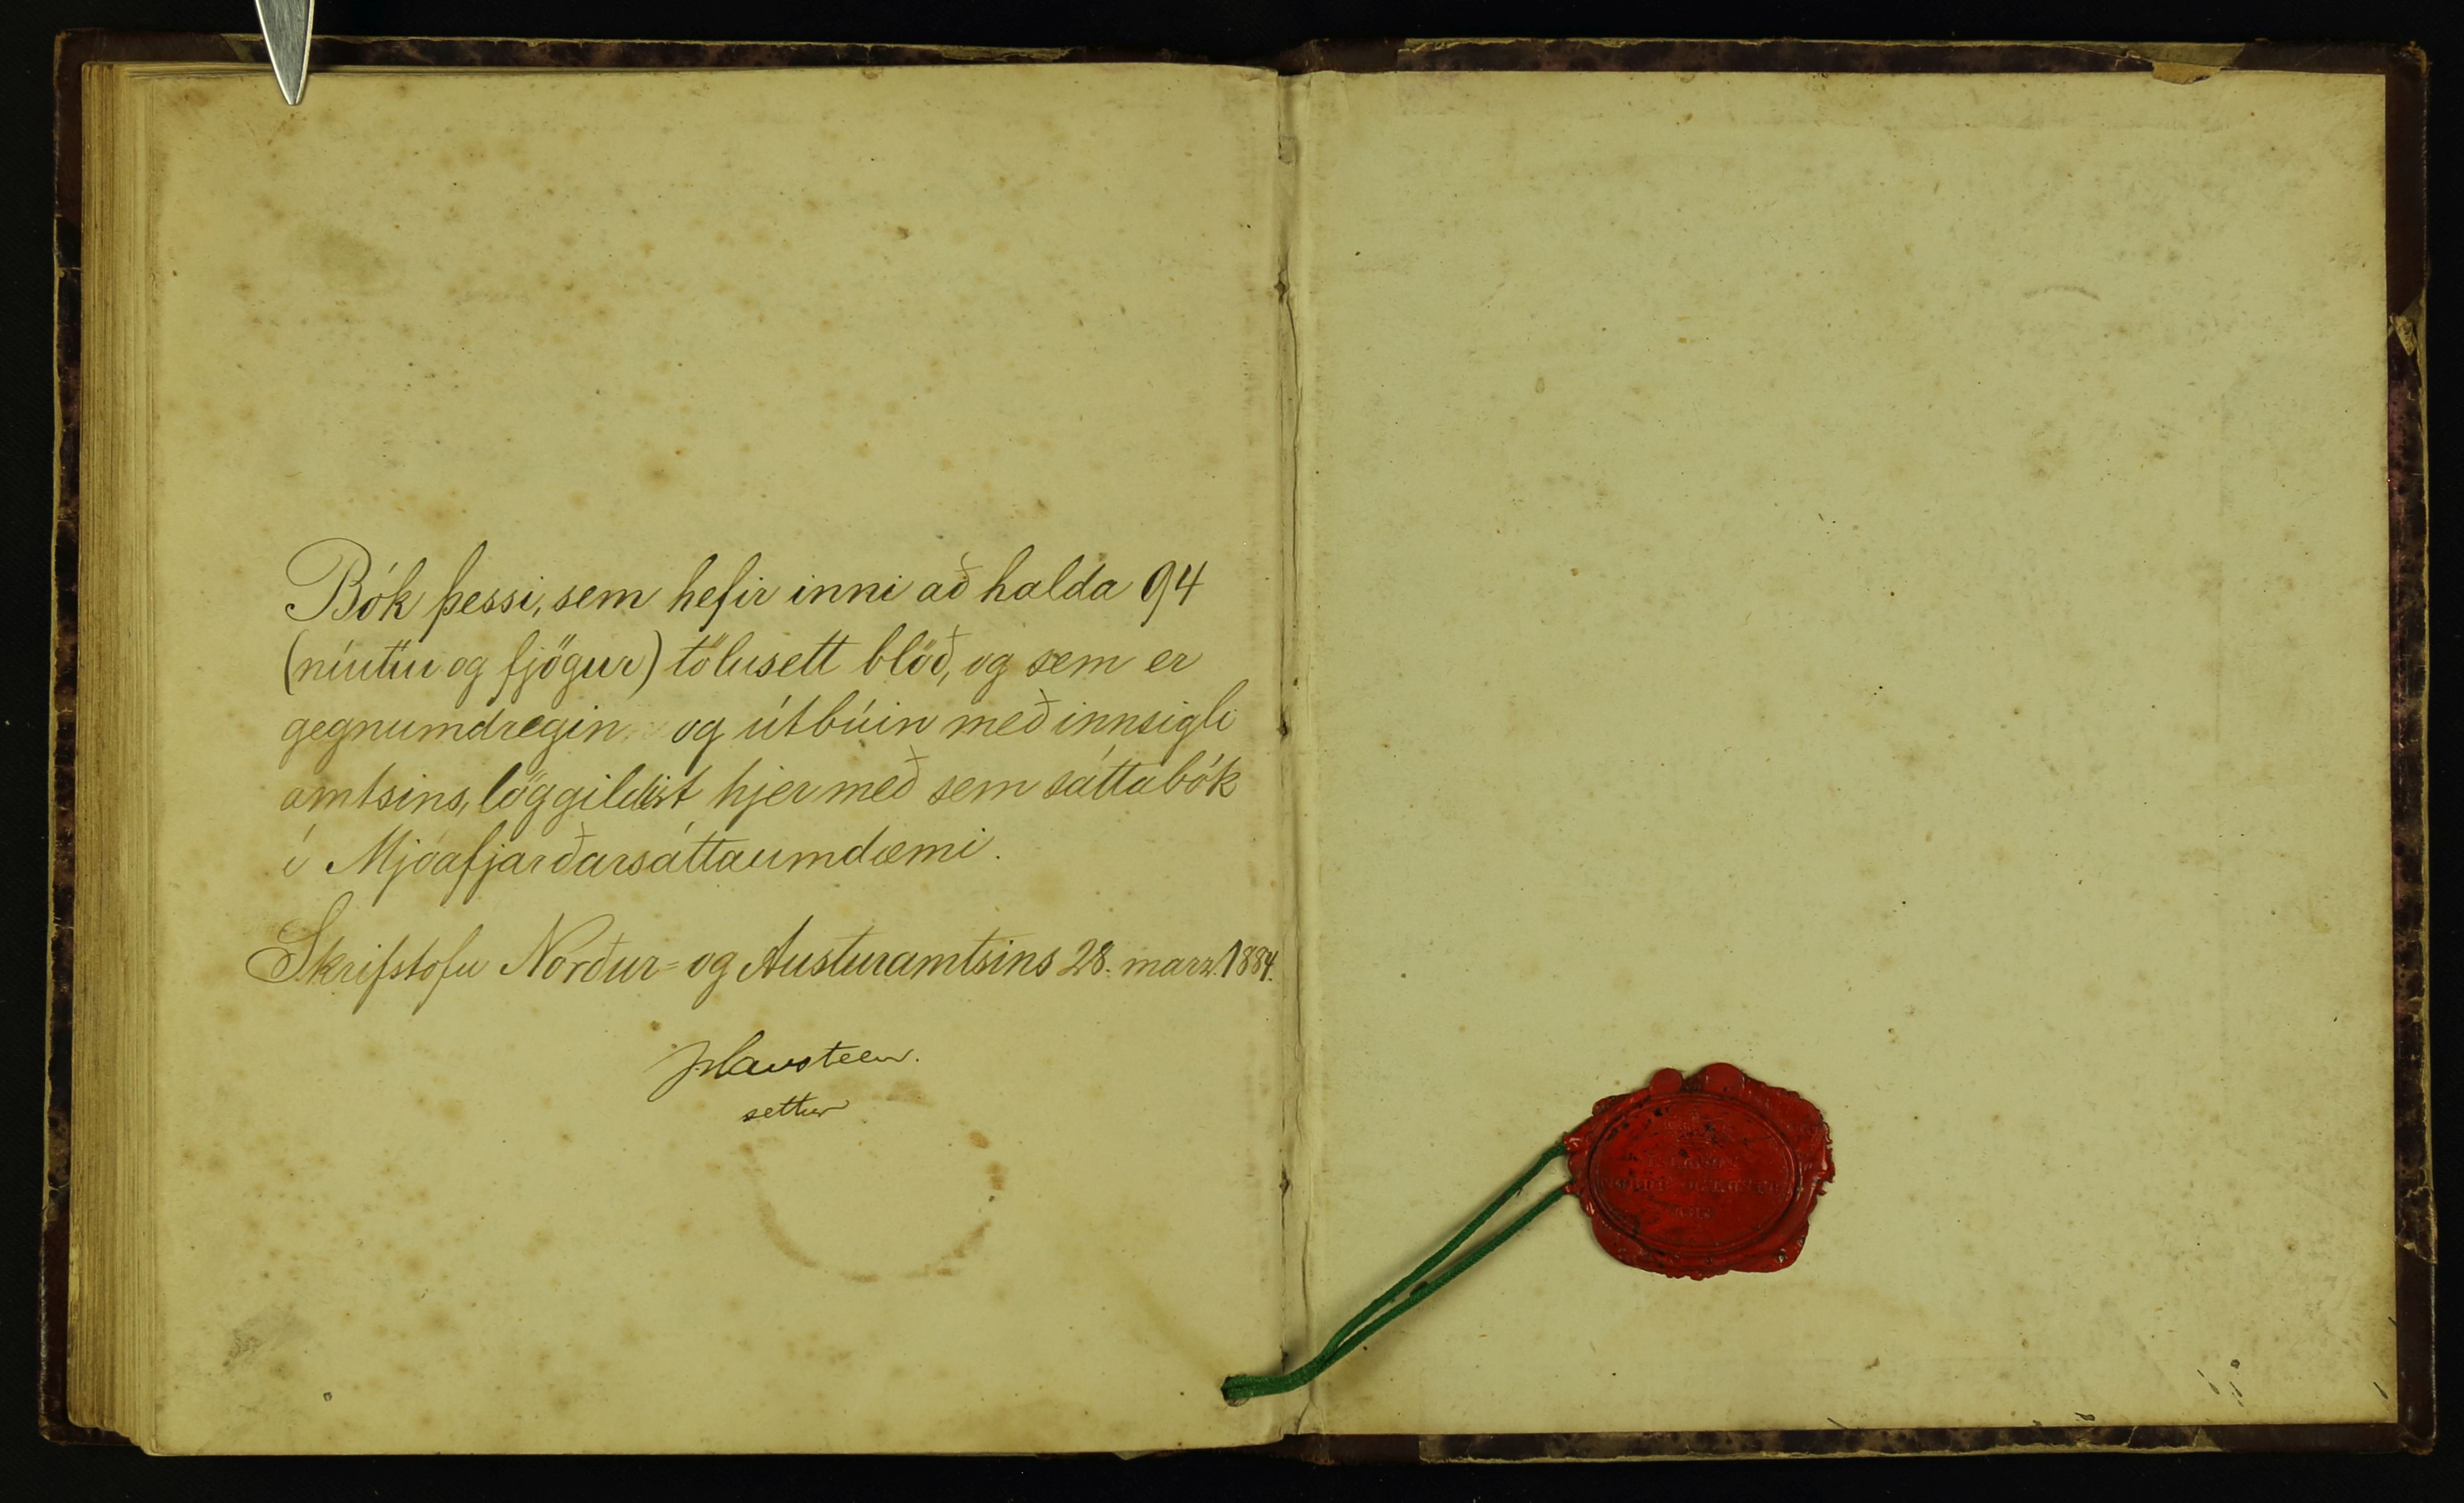 Bók þessi, sem hefir inni að halda 94
(níutíu og fjögur) tölusett blöð, og sem er
gegnumdregin og útbúin með innsigli
amtsins, löggildist hjer með sem sáttabók
í Mjóafjarðarsáttaumdæmi.
Skrifstofu Norður- og Austuramtsins 28. marz 1884.
JHavsteen.
settur